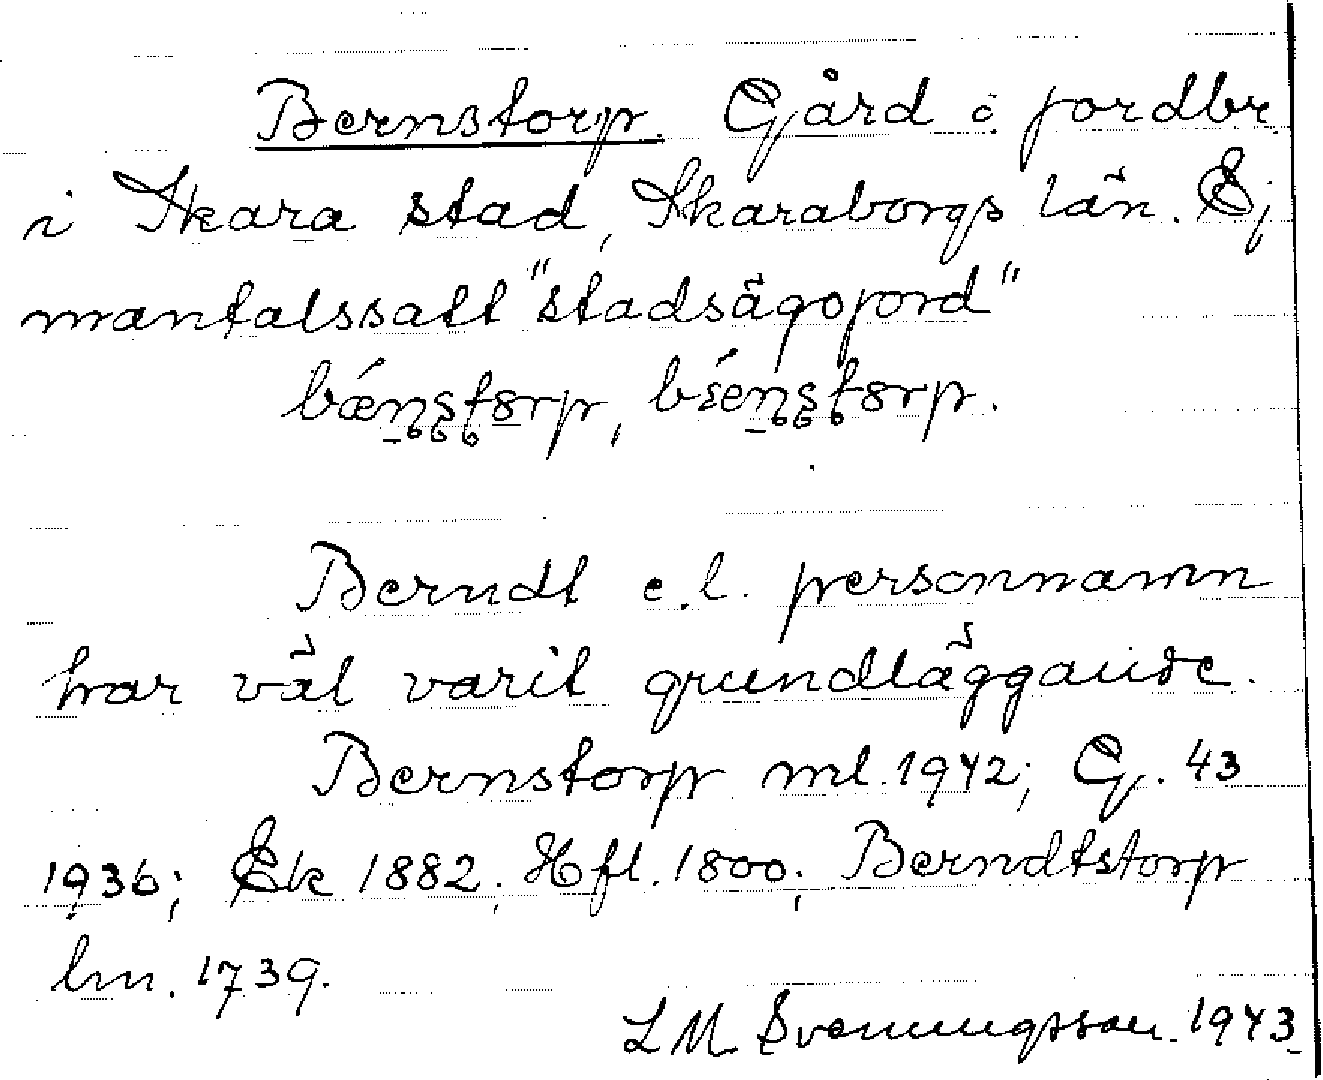 Bernstorp. Gård o jordbr
i Skara stad, Skaraborgs län. Ej
mantalssatt "stadsägojord"
Berndt e.l. personnamn
har väl varit grundläggande.
Bernstorp ml. 1942; G. 43
1936; Ek 1882; Hfl. 1800; Berndtstorp
lm. 1739.
L M. Svenungsson. 1943